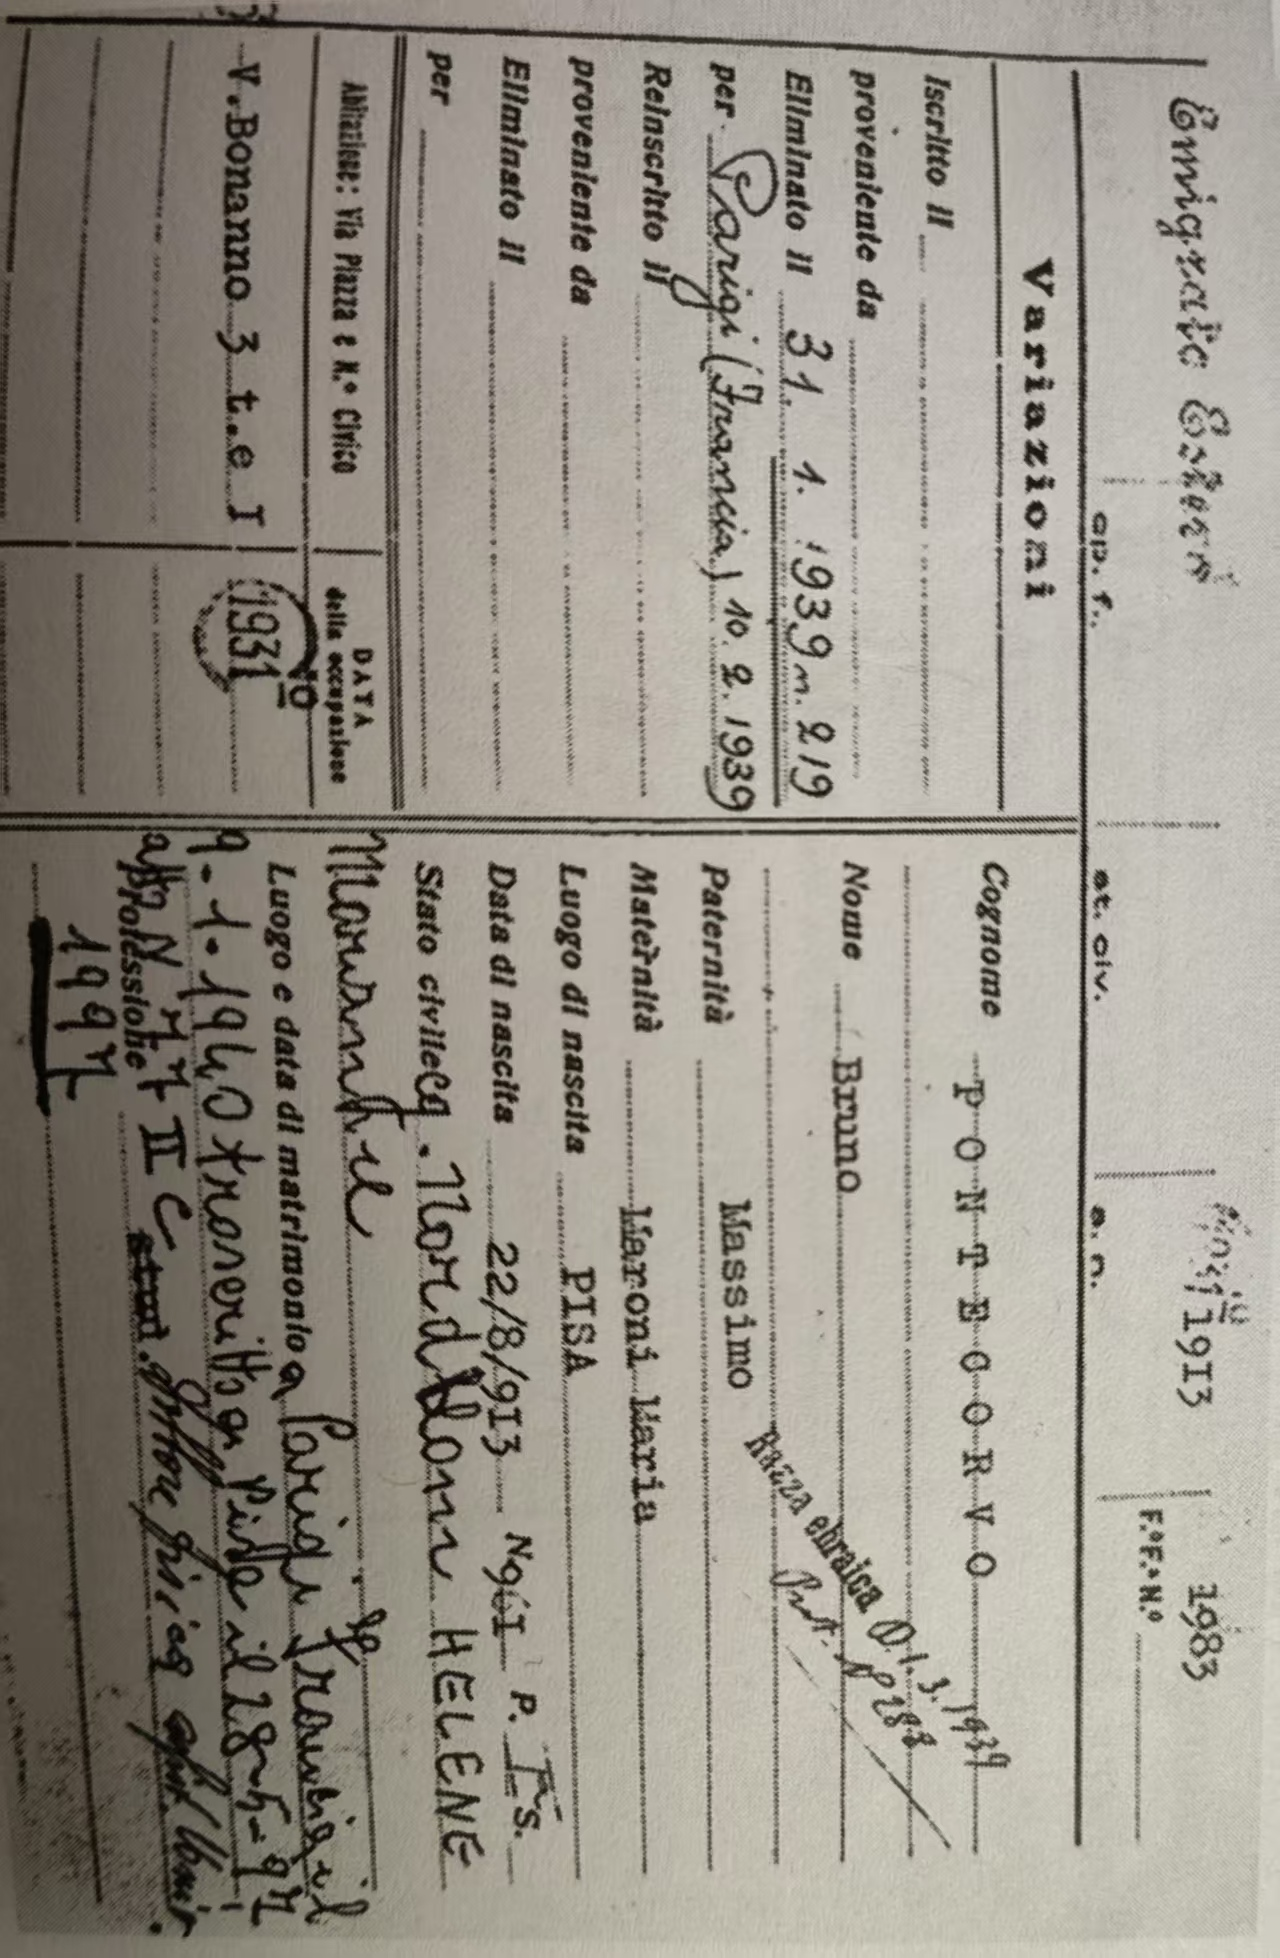 Emigrato Estero
1913
1983
op. f.
st. civ.
a. n.
F.º F.º N.º
Variazioni
Iscritto il
proveniente da
Eliminato il 31. 1. 1939 n. 219
per Parigi (Francia) 10. 2. 1939
Reinscritto il
proveniente da
Eliminato il
per
Abitazione: Via Piazza e N.º Civico
DATA
della occupazione
V. Bonanno 3 t. e I
1931
Cognome PONTECORVO
Nome Bruno
Razza ebraica D. 1. 3. 1939
Prot. N 288
Paternità Massimo
Maternità Maroni Maria
Luogo di nascita PISA
Data di nascita 22/8/913 N 961 P. I S.
Stato civile cg. Nordblom HELENE
Marianne
Luogo e data di matrimonio a Parigi Francia il
9-1-1940 trascritto a Pisa il 28-5-97
atto N 77 II C
Professione stud. dottore fisica
1997